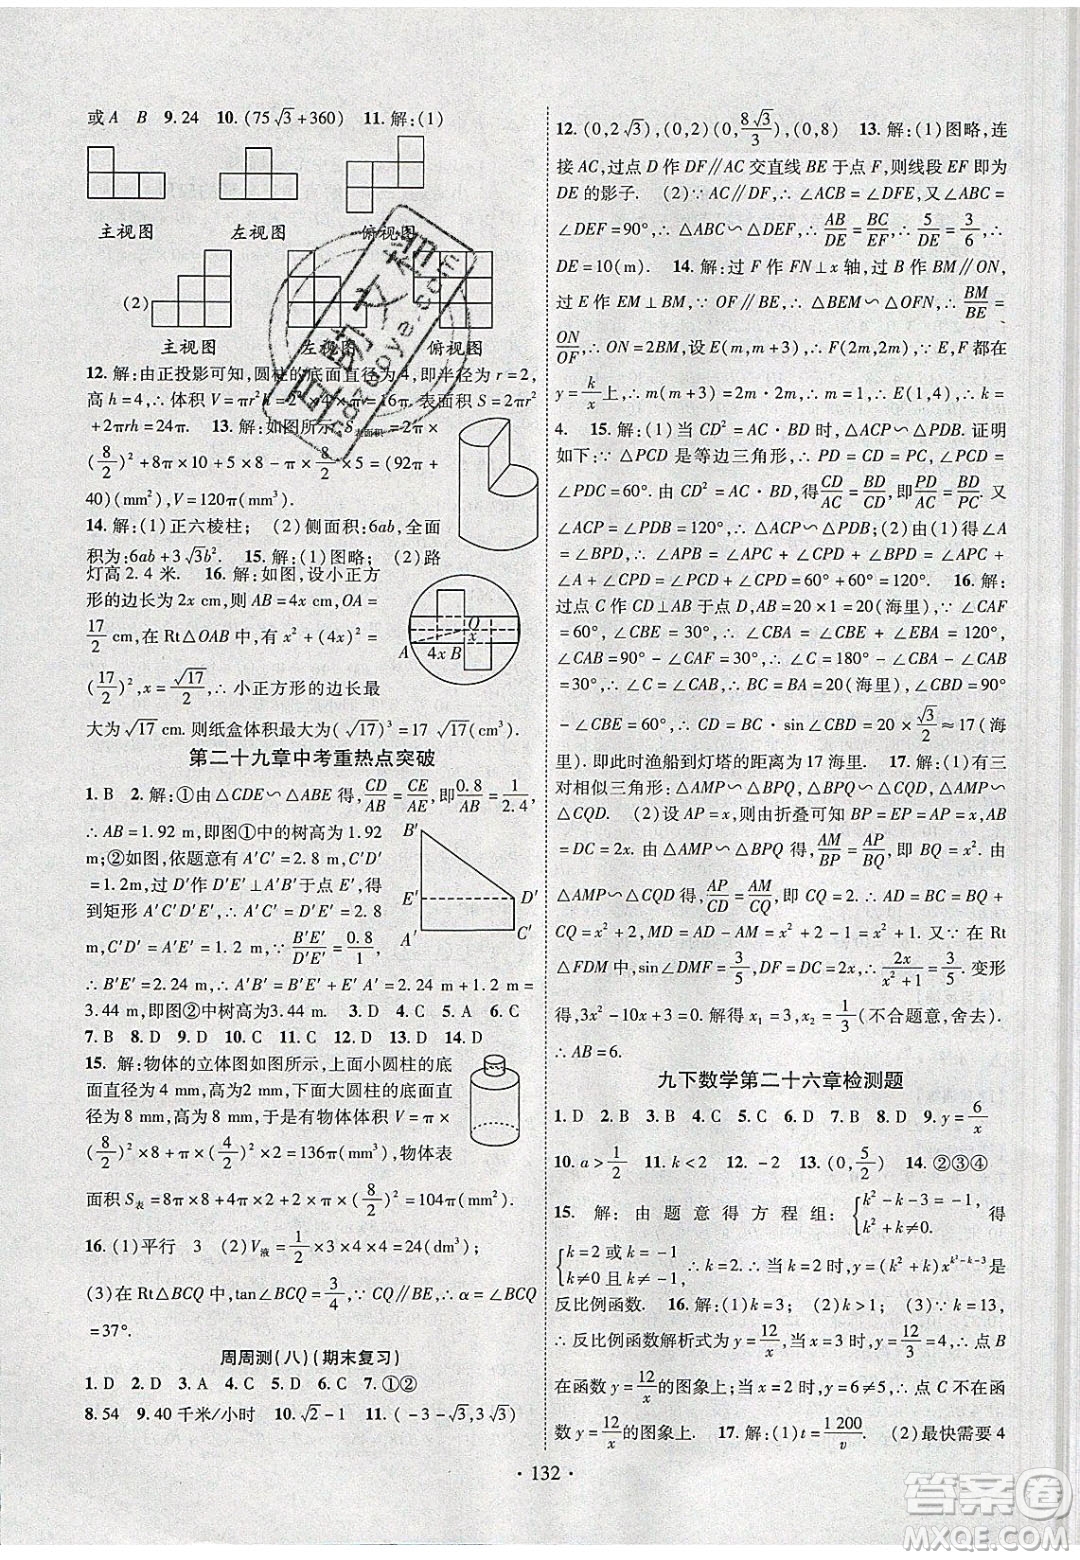 或A　B　9.24　10.(75√3+360)　11.解:(1)
主视图　左视图　俯视图
(2)
主视图　左视图　俯视图
12.解:由正投影可知,圆柱的底面直径为4,即半径r=2,
高h=4,∴体积V=πr²h=2²×4π=16π.表面积S=2πr²
+2πrh=24π.　13.解:如图所示,S表面积=2π×
(8/2)²+8π×10+1/2×8π×5+8/2×5×2=(92π+
40)(mm²),V=120π(mm³).
14.解:(1)正六棱柱;　(2)侧面积:6ab,全面
积为:6ab+3√3b².　15.解:(1)图略;　(2)路
灯高2.4米.　16.解:如图,设小正方
形的边长为2x cm,则AB=4x cm,OA=
17/2 cm,在Rt△OAB中,有x²+(4x)²=
(17/2)²,x=√17/2,∴小正方形的边长最
A　4x B　O　x
大为√17 cm.则纸盒体积最大为(√17)³=17√17 cm³.
第二十九章中考重热点突破
1.B　2.解:①由△CDE∽△ABE得,CD/AB=CE/AE,即0.8/AB=1/2.4,
∴AB=1.92 m,即图①中的树高为1.92
m;②如图,依题意A′C′=2.8 m,C′D′
=1.2m,过D′作D′E′⊥A′B′于点E′,得
到矩形A′C′D′E′,∴A′E′=C′D′=2.8
m,C′D′=A′E′=1.2 m,∵B′E′/D′E′=0.8/1
B′　E′　D′　A′　C′
∴B′E′=2.24 m,∴A′B′=1.2 m+2.24 m=
3.44 m,即图②中树高为3.44 m.　3.D　4.C　5.A　6.C
7.B　8.D　9.D　10.C　11.C　12.D　13.D　14.D
15.解:物体的立体图如图所示,上面小圆柱的底
面直径为4 mm,高为2 mm,下面大圆柱的底面
直径为8 mm,高为8 mm,于是有物体体积=π×
(8/2)²×8+π×(4/2)²×2=136π(mm³),物体表
面积S表=8π×8+4π×2+2×π×(8/2)²=104π(mm²).
16.(1)平行　3　(2)V液=1/2×3×4×4=24(dm³);
(3)在Rt△BCQ中,tan∠BCQ=3/4,∵CQ∥BE,∴α=∠BCQ
=37°.
周周测(八)(期末复习)
1.D　2.D　3.A　4.C　5.C　6.C　7.①②
8.54　9.40千米/小时　10.√2-1　11.(-3-√3,3√3)
12.(0,2√3),(0,2)(0,8√3/3),(0,8)　13.解:(1)图略,连
接AC,过点D作DF∥AC交直线BE于点F,则线段EF即为
DE的影子.　(2)∵AC∥DF,∴∠ACB=∠DFE,又∠ABC
=∠DEF=90°,∴△ABC∽△DEF,∴AB/DE=BC/EF,∴5/DE=3/6,∴
DE=10(m).　14.解:过F作FN⊥x轴,过A作BM∥ON,
过E作EM⊥BM,∵OF∥BE,∴△BEM∽△OFN,∴BM/BE=
ON/OF,∴ON=2BM,设E(m,m+3),∴F(2m,2m),∵E、F都在
y=k/x上,∴m(m+3)=2m·2m,∴m=1,∴E(1,4),∴k=
4.　15.解:(1)当CD²=AC·BD时,△ACP∽△PDB.证明
如下:∵△PCD是等边三角形,∴PD=CD=PC,∠PCD=
∠PDC=60°.由CD²=AC·BD,得CD/AC=BD/CD,即PD/AC=BD/PC,又
∠ACP=∠PDB=120°,∴△ACP∽△PDB;(2)由(1)得∠A
=∠BPD,∴∠APB=∠APC+∠CPD+∠BPD=∠APC+
∠CPD+∠A=∠PCD+∠CPD=60°+60°=120°.　16.解:
过点C作CD⊥AB于点D,AB=20×1=20(海里),∵∠CAF
=60°,∠CBE=30°,∴∠CBA=∠CBE+∠EBA=120°,
∠CAB=90°-∠CAF=30°,∴∠C=180°-∠CBA-∠CAB
=30°,∴∠C=∠CAB,∴BC=BA=20(海里),∠CBD=90°
-∠CBE=60°,∴CD=BC·sin∠CBD=20×√3/2≈17(海
里),即此时渔船到灯塔的距离约为17海里.　17.解:(1)有三
对相似三角形:△AMP∽△BPQ,△BPQ∽△CQD,△AMP∽
△CQD.　(2)设AP=x,由折叠可知BP=EP=AP=x,AB=
DC=2x.∵由△AMP∽△BPQ得,AM/BP=AP/BQ,即BQ=x².由
△AMP∽△CQD得,AP/CD=AM/CQ,即CQ=2.AD=BC=BQ+
CQ=x²+2,MD=AD-AM=x²+2-1=x²+1.又∵在Rt
△FDM中,sin∠DMF=3/5,DF=DC=2x,∴2x/x²+1=3/5.变形
得,3x²-10x+3=0.解得x₁=3,x₂=1/3(不合题意,舍去).
∴AB=6.
九下数学第二十六章检测题
1.D　2.B　3.B　4.C　5.D　6.D　7.B　8.D　9.y=6/x
10.a>1/2　11.k<2　12.-2　13.(0,5/2)　14.②③④
15.解:由题意得方程组:{k²-k-3=-1, k²+k≠0.　得
{k=2或k=-1 k≠0且k≠-1,∴k=2.∴当k=2时,y=(k²+k)x^(k²-k-3)是
反比例函数.　16.解:(1)k=3;　(2)∵k=13,∴k-1=12,
∴反比例函数解析式为y=12/x,当x=3时,y=12/3=4,∴点B
在函数y=12/x的图象上;当x=2时,y=12/2=6≠5,∴点C不在函
数y=12/x的图象上.　17.解:(1)t=1 200/v.　(2)最快需要4
·132·
答案圈
MXQE.COM